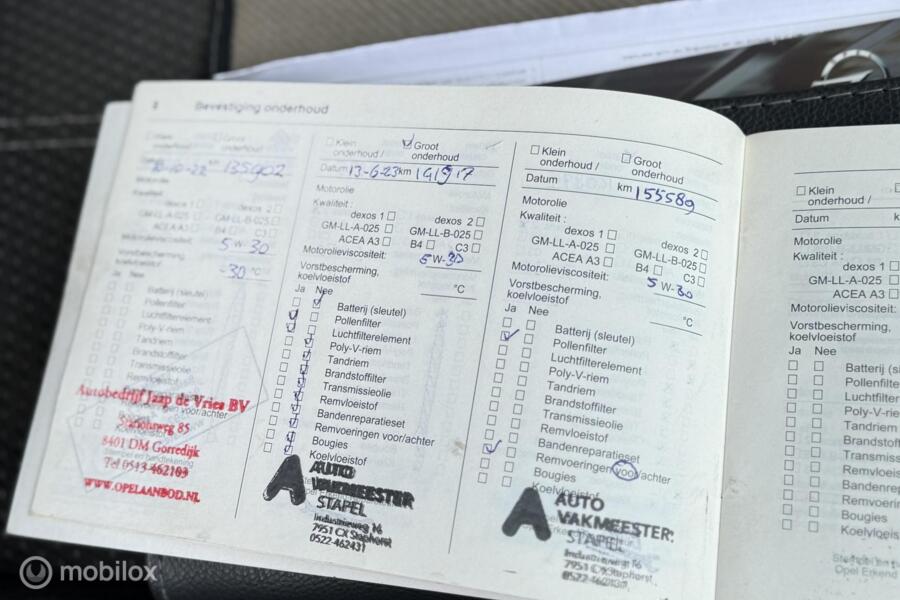 8 Bevestiging onderhoud
Klein onderhoud / Groot onderhoud
10-10-22 km 135902
Motorolie
Kwaliteit
dexos 1 dexos 2
GM-LL-A-025 GM-LL-B-025
ACEA A3 B4 C3
Motorolieviscositeit: 5 W-30
Vorstbescherming,
koelvloeistof -30 °C
Ja Nee
Batterij (sleutel)
Pollenfilter
Luchtfilterelement
Poly-V-riem
Tandriem
Brandstoffilter
Transmissieolie
Remvloeistof
Autobedrijf Jaap de Vries BV
Stationsweg 85
8401 DM Gorredijk
Tel 0513-462103
WWW.OPELAANBOD.NL
Klein
onderhoud /
Groot
onderhoud
Datum 13-6-23 km 141917
Motorolie
Kwaliteit :
dexos 1 dexos 2
GM-LL-A-025 GM-LL-B-025
ACEA A3 B4 C3
Motorolieviscositeit: 5 W-30
Vorstbescherming,
koelvloeistof °C
Ja Nee
Batterij (sleutel)
Pollenfilter
Luchtfilterelement
Poly-V-riem
Tandriem
Brandstoffilter
Transmissieolie
Remvloeistof
Bandenreparatieset
Remvoeringen voor/achter
Bougies
Koelvloeistof
AUTO
VAKMEESTER
STAPEL
Industrieweg 16
7951 CX Staphorst
0522-462431
Klein
onderhoud /
Groot
onderhoud
Datum km 155589
Motorolie
Kwaliteit :
dexos 1 dexos 2
GM-LL-A-025 GM-LL-B-025
ACEA A3 B4 C3
Motorolieviscositeit: 5 W-30
Vorstbescherming,
koelvloeistof °C
Ja Nee
Batterij (sleutel)
Pollenfilter
Luchtfilterelement
Poly-V-riem
Tandriem
Brandstoffilter
Transmissieolie
Remvloeistof
Bandenreparatieset
Remvoeringen voor/achter
Bougies
Koelvloeistof
AUTO
VAKMEESTER
STAPEL
7951 CX Staphorst
Klein
onderhoud /
Datum
Motorolie
Kwaliteit :
dexos 1
GM-LL-A-025
ACEA A3
Motorolieviscositeit:
Vorstbescherming,
koelvloeistof
Ja Nee
Batterij (s
Pollenfilter
Luchtfilter
Poly-V-r
Tandriem
Brandstof
Transmiss
Remvloeis
Bandenrep
Remvoerin
Bougies
Koelvloeis
Opel Erkend
mobilox